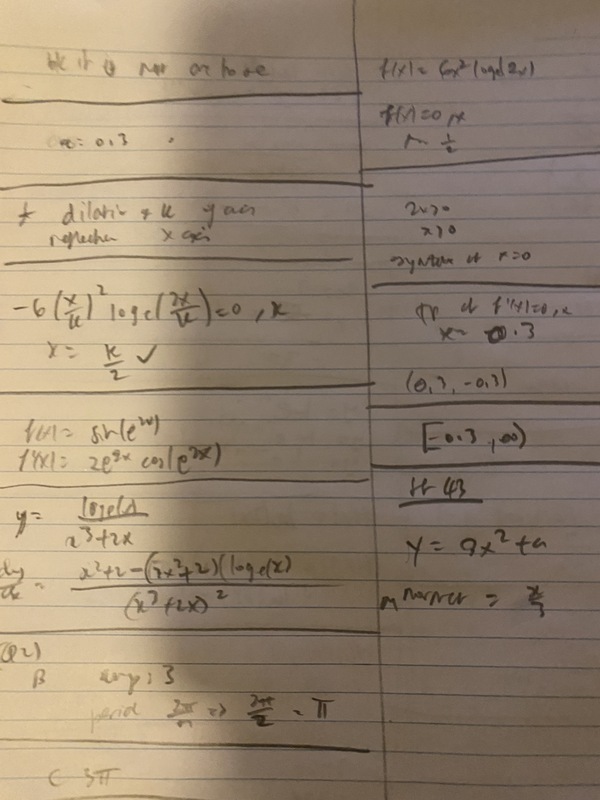 it is not one to one
x = 0.3
* dilation * k y axis
reflection x axis
-6(x/k)² loge(2x/k) = 0, x
x = k/2 ✓
f(x) = sin(e^2x)
f'(x) = 2e^2x cos(e^2x)
y = loge(x)
x³+2x
dy/dx = x²+2-(3x²+2)(loge(x)
(x³+2x)²
Q2)
B amp: 3
period 2π/n => 2π/2 = π
C 3π
f(x) = 6x² loge(2x)
f(x)=0, x
x = 1/2
2x>0
x>0
at x=0
tp at f'(x)=0, x
x = 0.3
(0.3, -0.3)
[-0.3, ∞)
43
y = 9x² + a
m = x/3